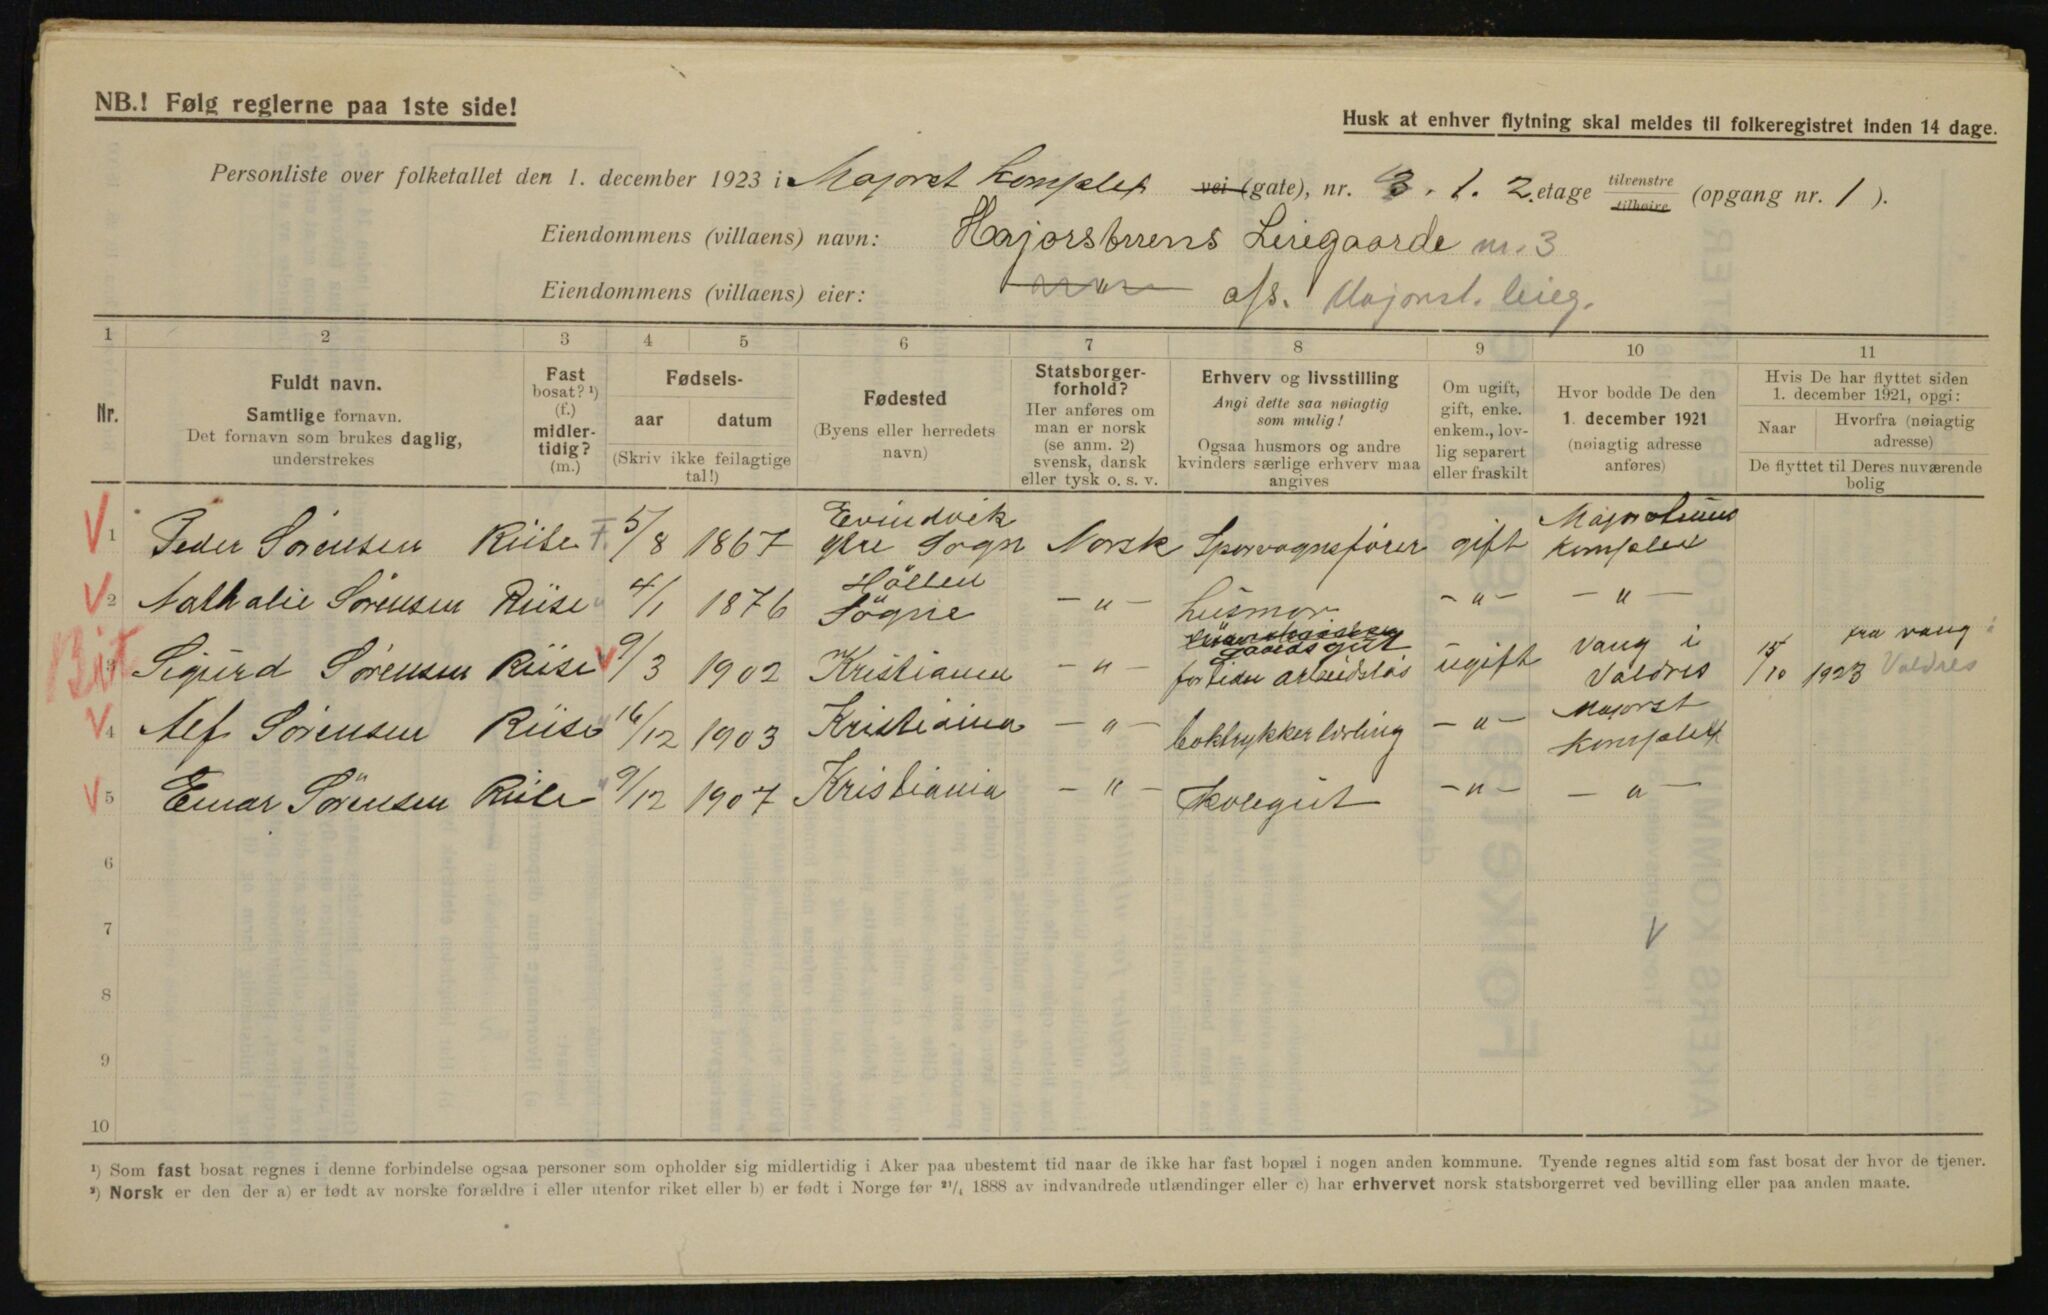 NB.! Følg reglerne paa 1ste side!
Husk at enhver flytning skal meldes til folkeregistret inden 14 dage.
Personliste over folketallet den 1. december 1923 i Majorst Komplex vei (gate), nr. 3. 1. 2. etage tilvenstre tilhøire (opgang nr. 1 ).
Eiendommens (villaens) navn: Majorstuens Leiegaarde nr. 3
Eiendommens (villaens) eier: a/s. Majorst. leieg.
1 2 3 4 5 6 7 8 9 10 11
Nr.
Fuldt navn.
Samtlige fornavn.
Det fornavn som brukes daglig,
understrekes
Fast
bosat? ¹)
(f.)
midler-
tidig?
(m.)
Fødsels-
aar datum
(Skriv ikke feilagtige
tal!)
Fødested
(Byens eller herredets
navn)
Statsborger-
forhold?
Her anføres om
man er norsk
(se anm. 2)
svensk, dansk
eller tysk o. s. v.
Erhverv og livsstilling
Angi dette saa nøiagtig
som mulig!
Ogsaa husmors og andre
kvinders særlige erhverv maa
angives
Om ugift,
gift, enke.
enkem., lov-
lig separert
eller fraskilt
Hvor bodde De den
1. december 1921
(nøiagtig adresse
anføres)
Hvis De har flyttet siden
1. december 1921, opgi:
Naar Hvorfra (nøiagtig
adresse)
De flyttet til Deres nuværende
bolig
Evindvik Majorstuens
1 Peder Sørensen Riise f. 5/8 1867 ytre Sogn Norsk Sporvognsfører gift Komplex
Höllen
2 Nathalie Sørensen Riise " 4/1 1876 Sögne — " — husmor — " — — " —
Bit
Gaardsgut Vang i fra vang i
3 Sigurd Sørensen Riise 9/3 1902 Kristiania — " — fortiden arbeidsløs ugift Valdres 15/10 1923 Valdres
Majorst
4 Alf Sørensen Riise 16/12 1903 Kristiania — " — boktrykkerlærling — " — Komplex
5 Einar Sörensen Riise " 9/12 1907 Kristiania — " — Skolegut — " — — " —
6
7
8
9
10
¹) Som fast bosat regnes i denne forbindelse ogsaa personer som opholder sig midlertidig i Aker paa ubestemt tid naar de ikke har fast bopæl i nogen anden kommune. Tyende regnes altid som fast bosat der hvor de tjener.
²) Norsk er den der a) er født av norske forældre i eller utenfor riket eller b) er født i Norge før ²¹/₄ 1888 av indvandrede utlændinger eller c) har erhvervet norsk statsborgerret ved bevilling eller paa anden maate.